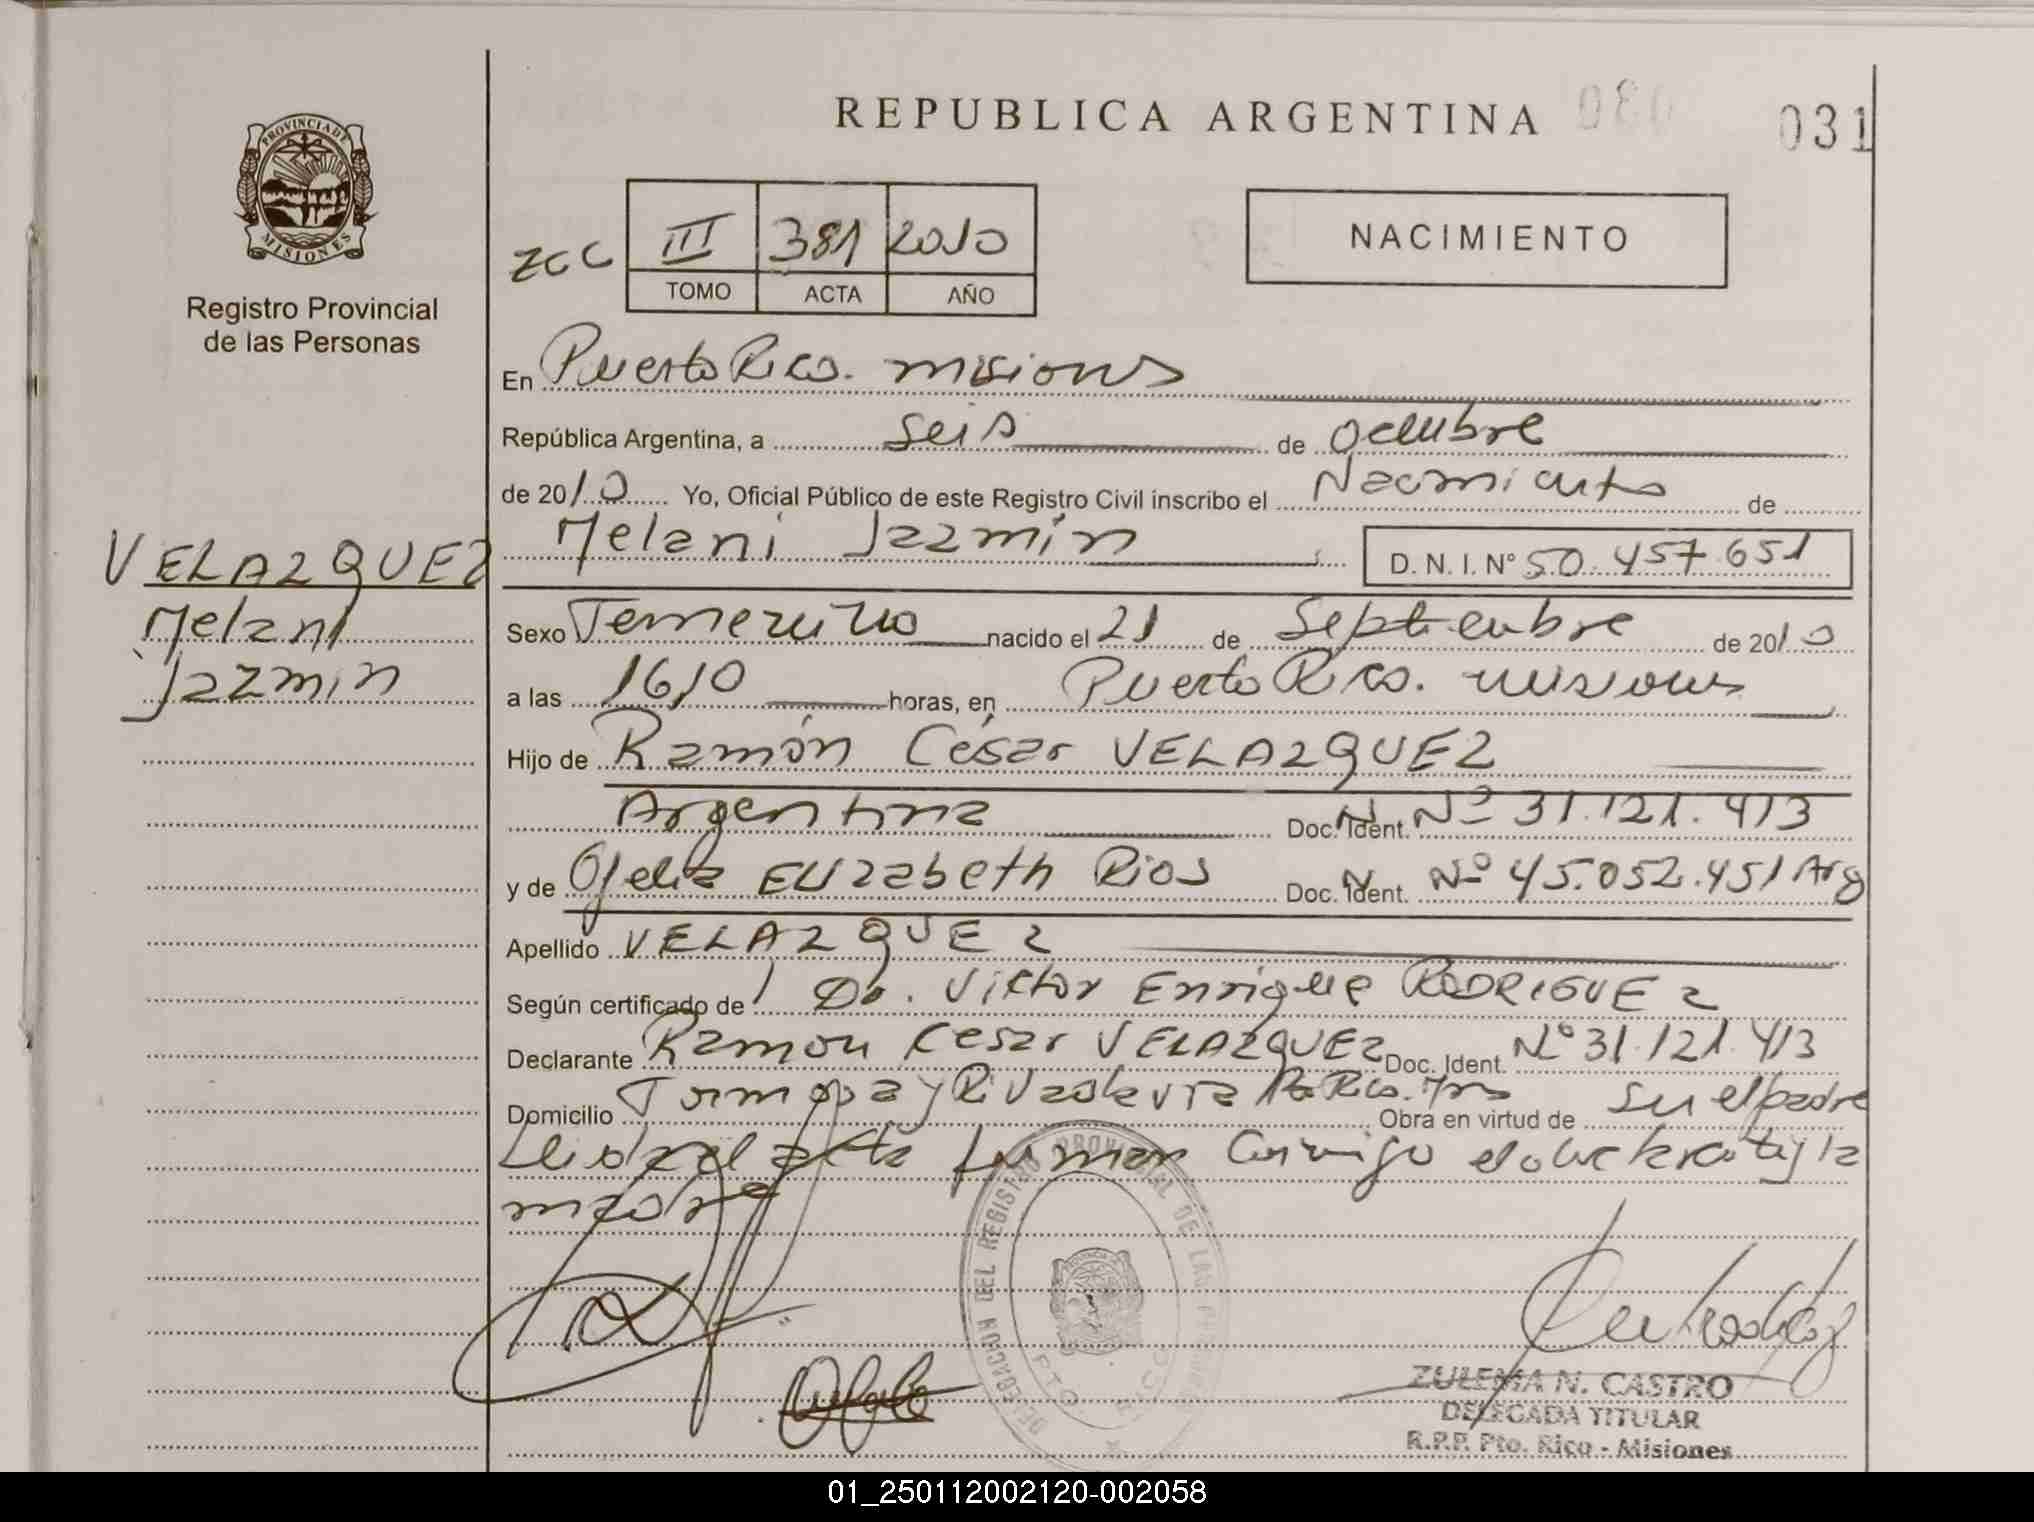 REPUBLICA ARGENTINA
030
031
PROVINCIA DE
MISIONES
Registro Provincial
de las Personas
ZCC III 381 2010
TOMO ACTA AÑO
NACIMIENTO
En Puerto Rico. misiones
República Argentina, a seis de octubre
de 2010 Yo, Oficial Público de este Registro Civil inscribo el Nacimiento de
Melani Jazmín D. N. I. N° 50.457.651
VELAZQUEZ
Melani
Jazmin
Sexo Femenino nacido el 21 de Septiembre de 2010
a las 16,10 horas, en Puerto Rico. misiones
Hijo de Ramón César VELAZQUEZ
Argentina Doc. Ident. N° 31.121.413
y de Ofelia Elizabeth Rios Doc. Ident. N° 45.052.451 Arg
Apellido VELAZQUEZ
Según certificado de Dr. Victor Enrique RODRIGUEZ
Declarante Ramon Cesar VELAZQUEZ Doc. Ident. N° 31.121.413
Domicilio y Rivadavia Pto Rico. Mns Obra en virtud de su el padre
Leida el acta firman conmigo el declarante y la
madre
DELEGACION DEL REGISTRO PROVINCIAL DE LAS PERSONAS
PTO. RICO
ZULEMA N. CASTRO
DELEGADA TITULAR
R.P.P. Pto. Rico - Misiones
01_250112002120-002058